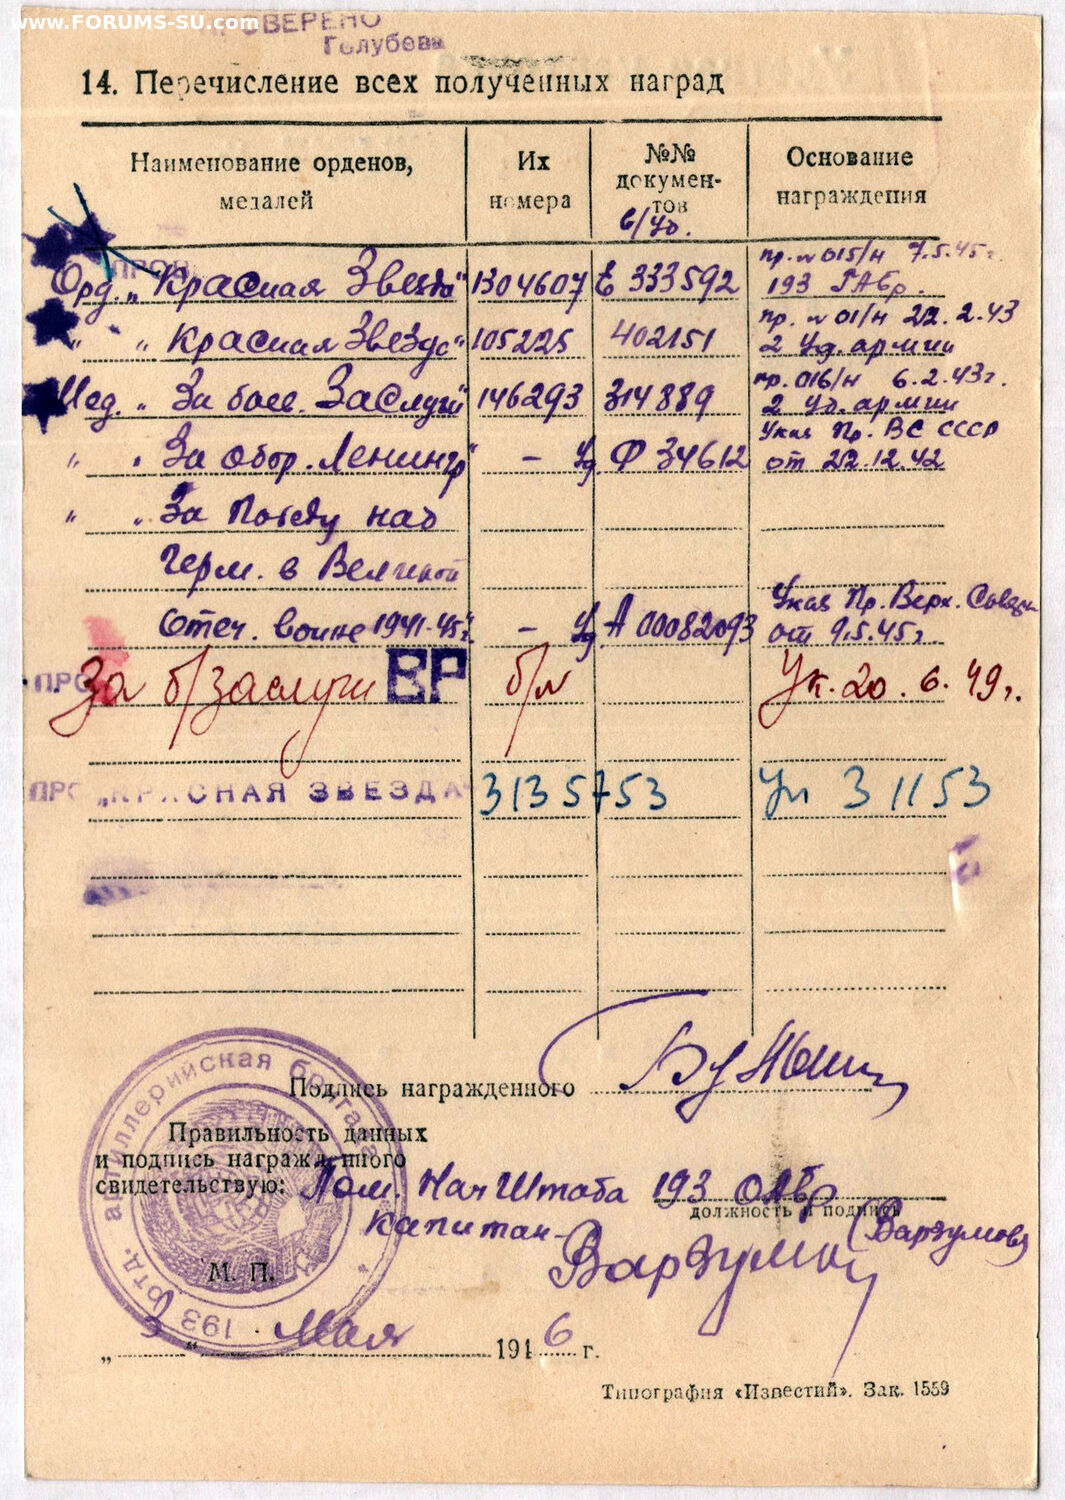 www.FORUMS-SU.com
ПРОВЕРЕНО
Голубева
14. Перечисление всех полученных наград
Наименование орденов, медалей
Их номера
№№ докумен-тов
б/уд.
Основание награждения
Орд. „Красная Звезда" 1304607 Е 333592 пр. № 015/н 7.5.45 г. 193 ГАБр.
" „Красная Звезда" 105225 402151 пр. № 01/н 22.2.43 2 Уд. армии
Мед. „За боев. Заслуги" 146293 314889 пр. 016/н 6.2.43 г. 2 уд. армии
" „За обор. Ленингр" – Уд. Ф 34612 Указ Пр. ВС СССР от 22.12.42
" „За Победу над
Герм. в Великой
Отеч. войне 1941-45 г." – Уд. А 0082093 Указ Пр. Верх. Совета от 9.5.45 г.
За б/заслуги ВР б/н Ук. 20.6.49 г.
„КРАСНАЯ ЗВЕЗДА" 3135753 Ук 3 11 53
Подпись награжденного
Правильность данных
и подпись награжденного
свидетельствую: Пом. Нач Штаба 193 ОАБр
должность и подпись
капитан Варзумов (Варзумов)
артиллерийская бригада
193 отд.
М. П.
„ " Мая 1946 г.
Типография «Известий». Зак. 1559